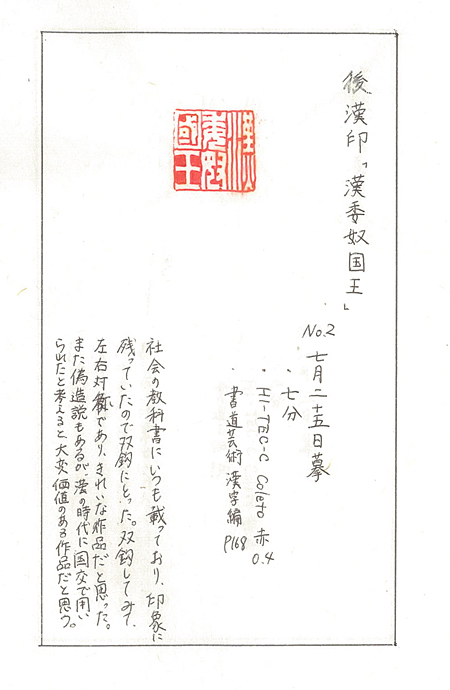 後漢印「漢委奴国王」
漢委奴國王
No.2 七月二十五日摹
・七分
・HI-TEC-C Coleto 赤 0.4
・書道芸術 漢字編 P168
社会の教科書にいつも載っており、印象に
残っていたので双鈎にとった。双鈎してみて、
左右対称であり、きれいな作品だと思った。
また偽造説もあるが、漢の時代に国交で用い
られたと考えると大変価値のある作品だと思う。